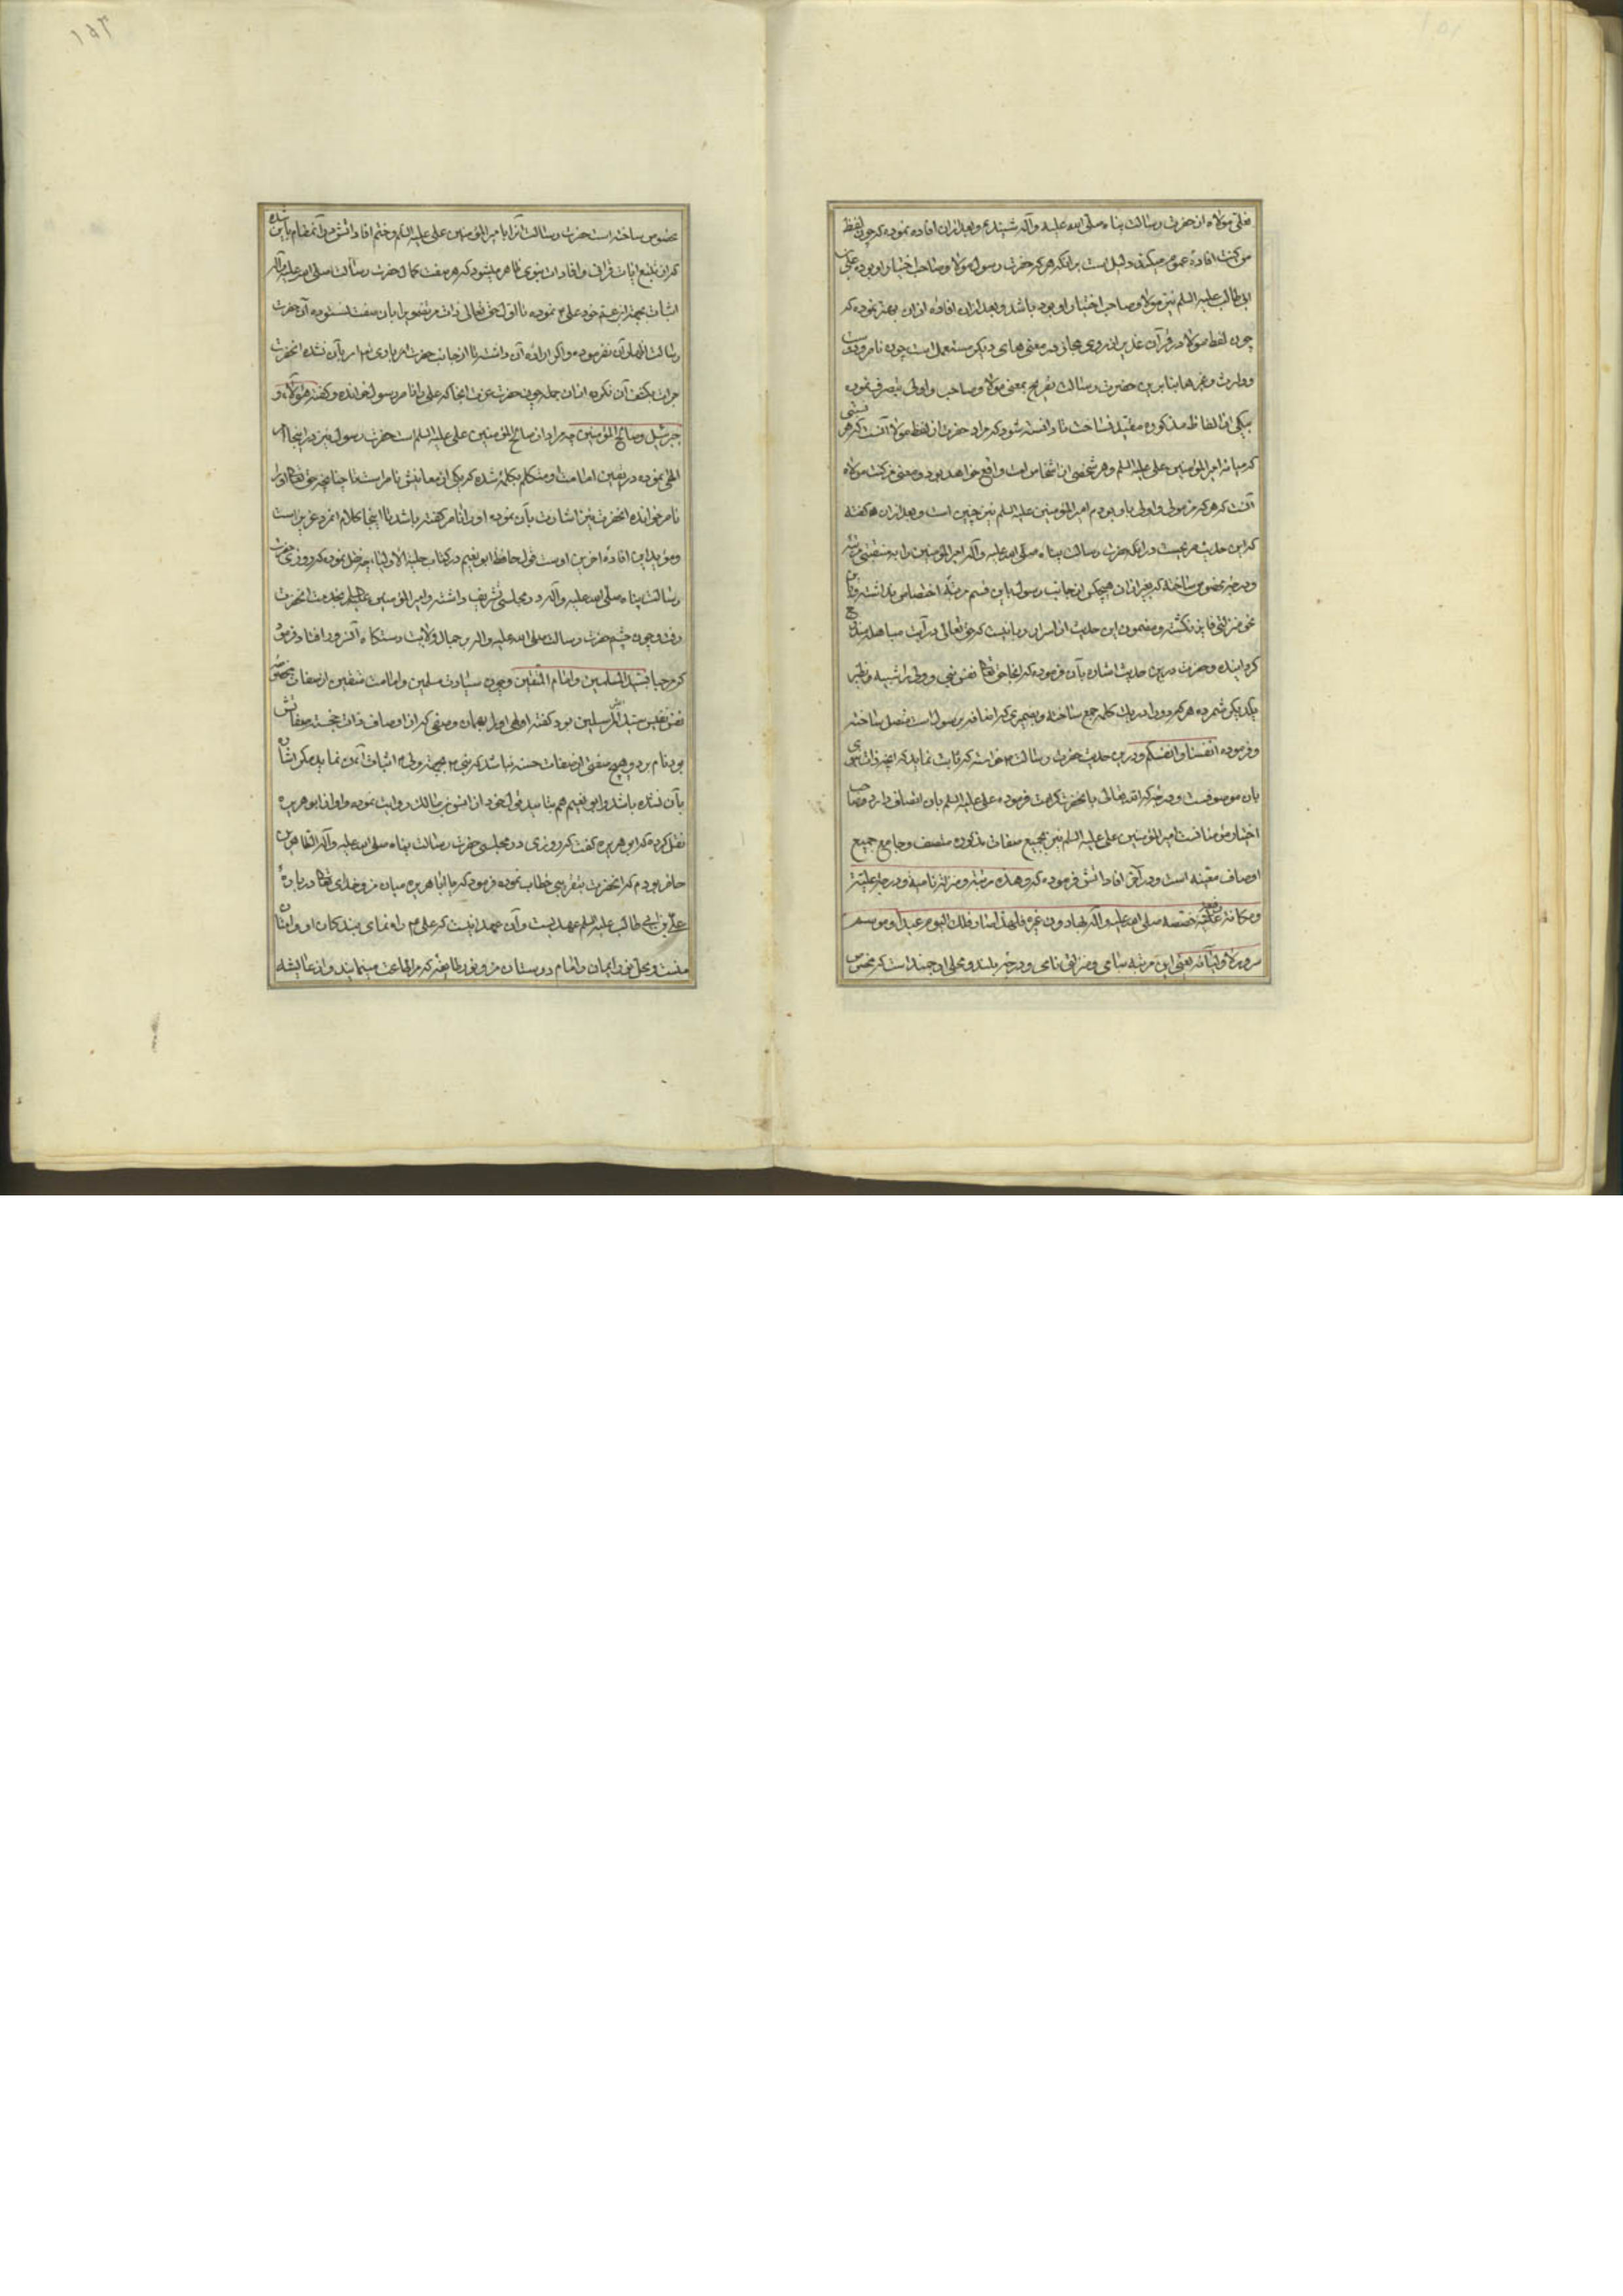 فعلی مولاه از حضرت رسالت پناه صلی الله علیه وآله شنیدم وبعد ازان افاده نموده که چون لفظ
من کنت افادهٔ عموم میکند دلیل است برانکه هرکه حضرت رسول مولا وصاحب اختیار او بوده علی بن
ابی طالب علیه السلم نیز مولا وصاحب اختیار او بوده باشد وبعد ازان افاوه ازان بهتر نموده که
چون لفظ مولا در قرآن عزیز از روی مجاز در معنی های دیکر مستعمل است چون ناصر ودوست
ووارث وغیرها بنابرین حضرت رسالت بصریح بمعنی مولا وصاحب واولی بتصرف نموده
بیکی از الفاظ مذکوره مقید نساخت تا دانسته شود که مراد حضرت از لفظ مولا آنست که هر نسبتی
که میانه امیر المؤمنین علی علیه السلم وهر شخصی از اشخاص امت واقع خواهد بود ومعنی من کنت مولاه
آنست که هرکه من مولی واولی باو بودم امیر المؤمنین علیه السلم نیز چنین است وبعد ازان گفته
که این حدیث صریحست درانکه حضرت رسالت پناه صلی الله علیه وآله امیر المؤمنین را به منقبتی ومرتبهٔ
ودرجهٔ مخصوص ساخته که بغیر ازان هیچکس از جانب رسول باین قسم مرتبهٔ اختصاص نداشته وباین
نحو منزلتی فایز نکشته ومضمون این حدیث از اسرار ربانیست که حق تعالی در آیت مباهله مندرج
کردانیده وحضرت درین حدیث اشاره بآن فرموده که اینجا حق تعالی نفس نبی وولی را شبیه ونظیر
یکدیکر شمرده هر دو را در یک کلمه جمع ساخته وبضمیری که اضافه برسول است متصل ساخته
وفرموده انفسنا وانفسکم ودرین حدیث حضرت رسالت خواسته که ثابت نماید که انچه ذات نبوی
بان موصوفست ودرجهٔ که الله تعالی بانحضرت کرامت فرموده علی علیه السلم بان اتصاف دارد وصاحب
اختیار مؤمنانست امیر المؤمنین علی علیه السلم نیز بجمیع صفات مذکوره متصف وجامع جمیع
اوصاف معینه است ودر آخر افاداتش فرموده که وهذه مرتبة ومنزلة سامیة ودرجة علیة
ومکانة رفیعة خصصه صلی الله علیه وآله بها دون غیره فلهذا صار ذلک الیوم عید او موسم
سرور لاولیائه یعنی این مرتبهٔ سامی ومنزلتی نامی ودرجهٔ بلند ومحلی ارجمند است که مخصوص
مخصوص ساخته است حضرت رسالت آنرا بامیر المؤمنین علی علیه السلم وختم افاداتش درآن مقام باین شده
که از تتبع ایات قرانی وافادات نبوی ظاهر میشود که هر صفت کمال حضرت رسالت صلی الله علیه وآله
اثبات بجهة ابن عم خود علی نموده تا اول حق تعالی ذات مرتضوی را بان صفت نستوده آن حضرت
رسالت اظهار آن نفرموده واکر ارادهٔ آن داشته تا از جانب حضرت باری امر بآن نشده انحضرت
جرات بکفت آن نکرده ازان جمله چون حضرت عزت انجا که علی را ناصر رسول خوانده وکفته هو مولاه و
جبرئیل وصالح المؤمنین چه مراد از صالح المؤمنین علی علیه السلم است حضرت رسول نیز در اینجا امر
الهی نموده در تعیین امامت ومتکلم بکلمهٔ شده که یکی از معانیش ناصر است تا چنانچه حق تعالی او را
ناصر خوانده انحضرت نیز اشارت بآن نموده او را ناصر کفته باشد تا اینجا کلام انمرد عزیز است
ومؤید این افادهٔ اخرین اوست قول حافظ ابو نعیم در کتاب حلیة الاولیا چه نقل نموده که روزی حضرت
رسالت پناه صلی الله علیه وآله در مجلسی تشریف داشته وامیر المؤمنین علیه السلم بخدمت انحضرت
رفت وچون چشم حضرت رسالت صلی الله علیه واله بر جمال ولایت دستکاه آنسرور افتاد فرمود
که مرحبا بسید المسلمین وامام المتقین وچون سیادت مسلمین وامامت متقین از صفات مخصوصه
نفس نفیس سید المرسلین بود کفته اولی او را بهمان وصفی که از اوصاف ذات خجسته صفاتش
بود نام برد وهیچ صفتی از صفات حسنه نباشد که نبی بجهة ولی اثبات آن نماید مکر اشاره
بآن شده باشد وابو نعیم هم بتایید قول خود از انس بن مالک روایت نموده واو از ابو هریره
نقل کرده که ابو هریره کفت که روزی در مجلسی حضرت رسالت پناه صلی الله علیه وآله الطاهرین
حاضر بودم که انحضرت بتقریبی خطاب نموده فرمود که یا ابا هریره میان من وخدای تعالی در بارهٔ
علی بن ابی طالب علیه السلم عهدیست وآن عهد انیست که علی راه نمای بندکان او ونشان
منست ومحل نور ایمان وامام دوستان من ونور طایفهٔ که مرا طاعت مینمایند واز عایشه